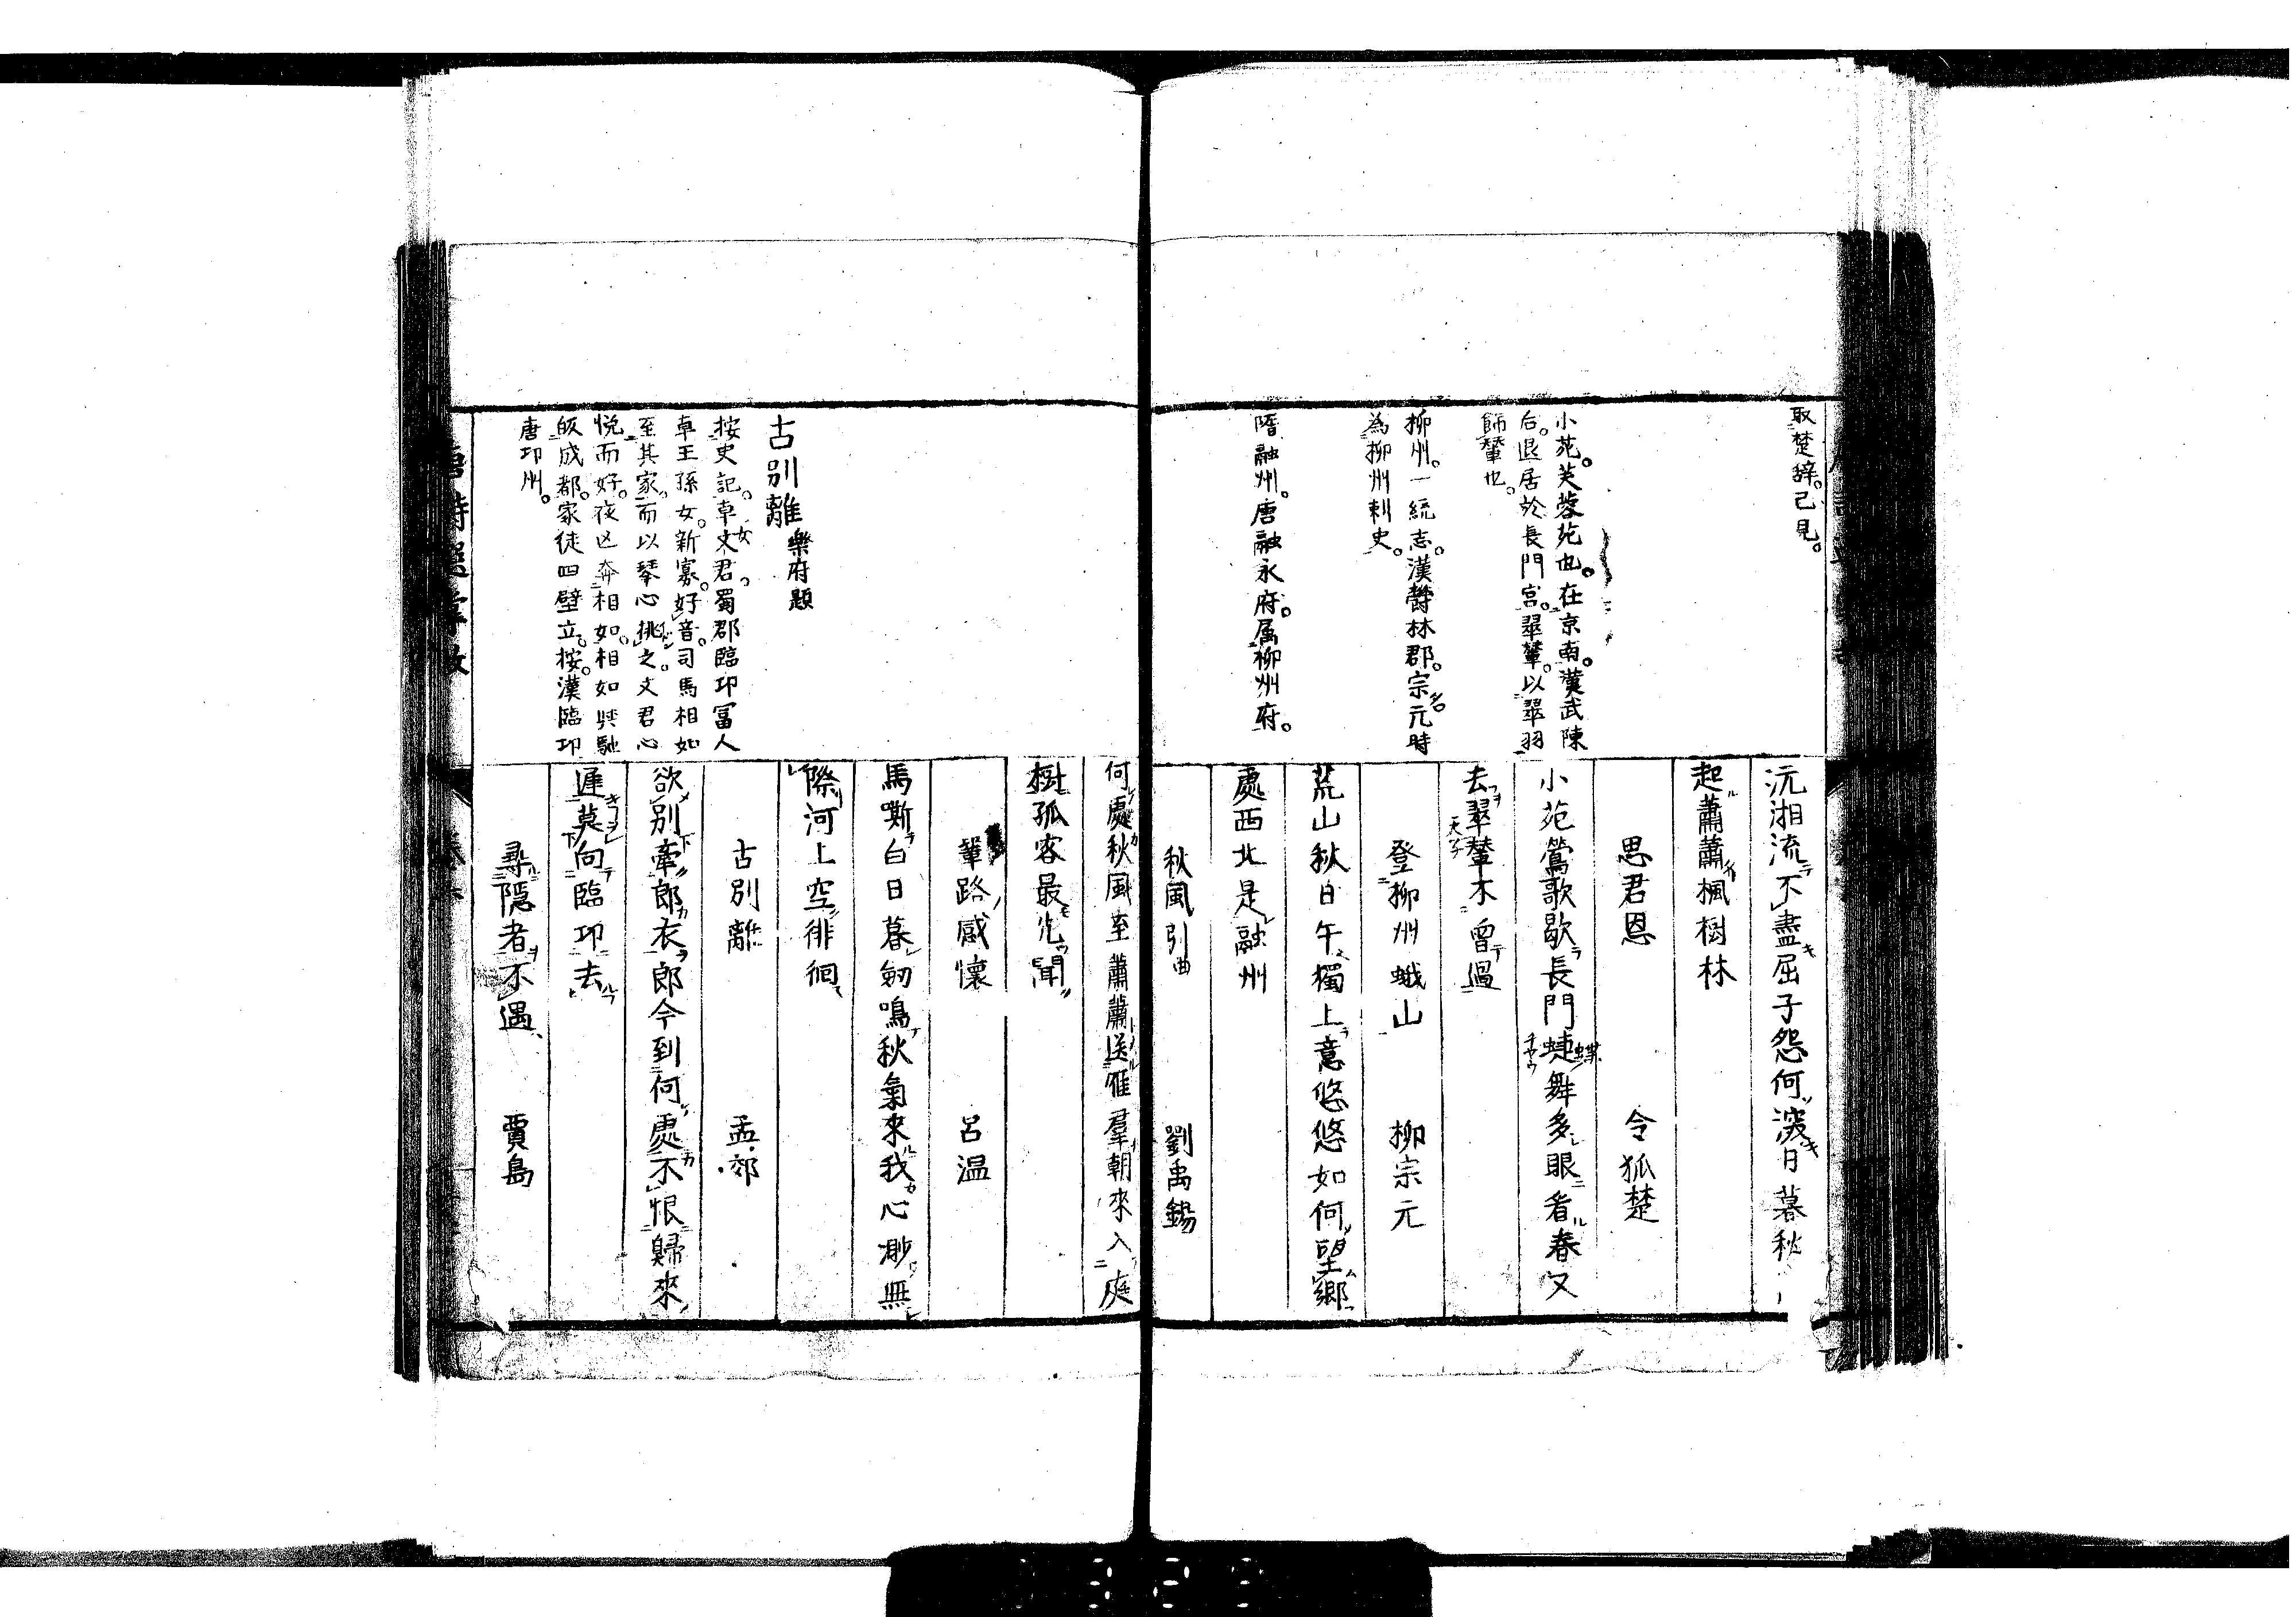 取楚辭。已見。
小苑。芙蓉苑也。在京南。漢武陳
后。退居於長門宮。翠輦。以翠羽
飾輦也。
柳州。一統志。漢欝林郡。宗元時
為柳州刺史。
隋融州。唐融永府。属柳州府。
沅湘流不盡屈子怨何深日暮秋
起蕭蕭楓樹林
思君恩 令狐楚
小苑鶯歌歇長門蜨舞多眼看春又
去翠輦不曾過
登柳州蛾山 柳宗元
荒山秋日午獨上意悠悠如何望鄉
處西北是融州
秋風引曲 劉禹錫
古別離樂府題
按史記。卓文君。蜀郡臨邛冨人
卓王孫女。新寡。好音。司馬相如
至其家。而以琴心挑之。文君心
悦而好。夜亡奔相如。相如與馳
皈成都。家徒四壁立。按。漢臨邛
唐邛州。
何處秋風至蕭蕭送雁羣朝來入庭
樹孤客最先聞
鞏路感懷 呂温
馬嘶白日暮劒鳴秋氣來我心渺無
際河上空徘徊
古別離 孟郊
欲別牽郎衣郎今到何處不恨歸來
遲莫向臨邛去
尋隠者不遇 賈島